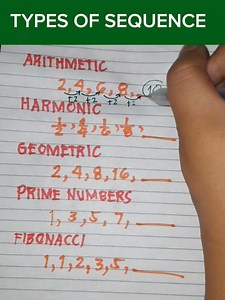 TYPES OF SEQUENCE
ARITHMETIC
2, 4, 6, 8, 10
+2 +2 +2 +2
HARMONIC
1/2, 1/4, 1/6, 1/8, ___
GEOMETRIC
2, 4, 8, 16, ___
PRIME NUMBERS
1, 3, 5, 7, ___
FIBONACCI
1, 1, 2, 3, 5, ___